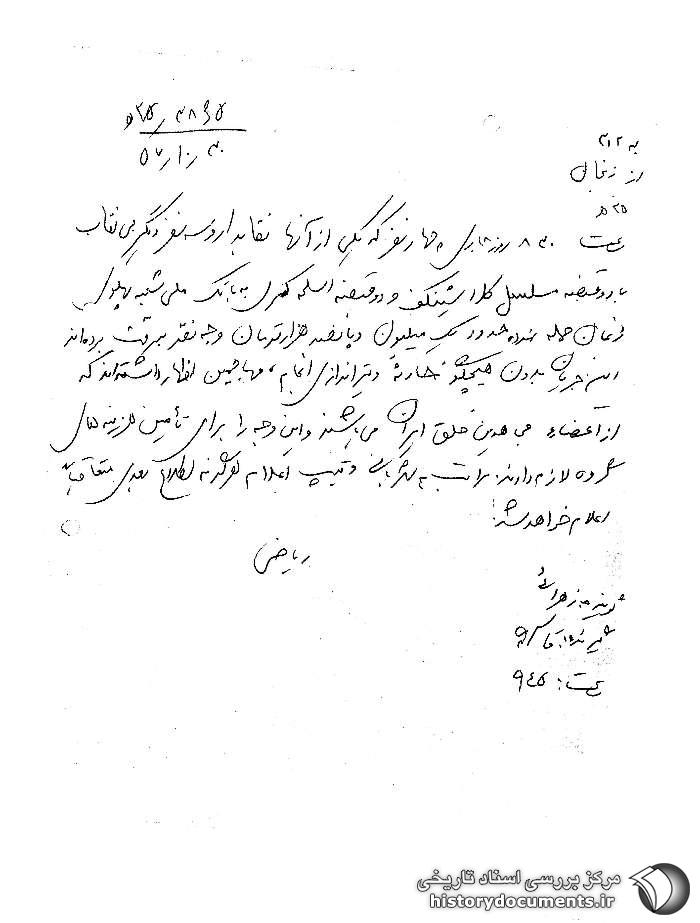 به ۳۱۲
از زنجان
۲۵ ه
ساعت ۸۳۰ روز جاری چهار نفر که یکی از آنها نقابدار و سه نفر دیگر بی نقاب
با دو قبضه مسلسل کلاشینکف و دو قبضه اسلحه کمری به بانک ملی شعبه پهلوی
زنجان حمله نموده حدود یک میلیون و پانصد هزار تومان وجه نقد بسرقت برده‌اند
این جریان بدون هیچگونه حادثه و تیراندازی انجام، مهاجمین اظهار داشته‌اند که
از اعضاء مجاهدین خلق ایران می‌باشند و این وجه را برای تأمین هزینه های
گروه لازم دارند. مراتب به شهربانی و تیپ اعلام هرگونه اطلاع بعدی متعاقباً
اعلام خواهد شد.
ریاضی
گوینده زهرائی
گیرنده
ساعت: ۹۴۵
مرکز بررسی اسناد تاریخی
historydocuments.ir